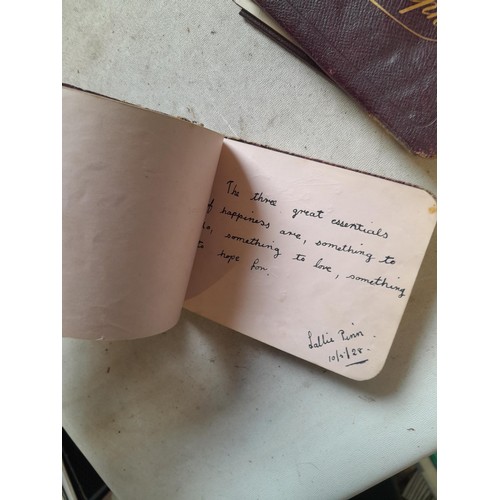 The three great essentials
f happiness are, something to
o, something to love, something
to hope for.
Sallie Penn
10/5/28.